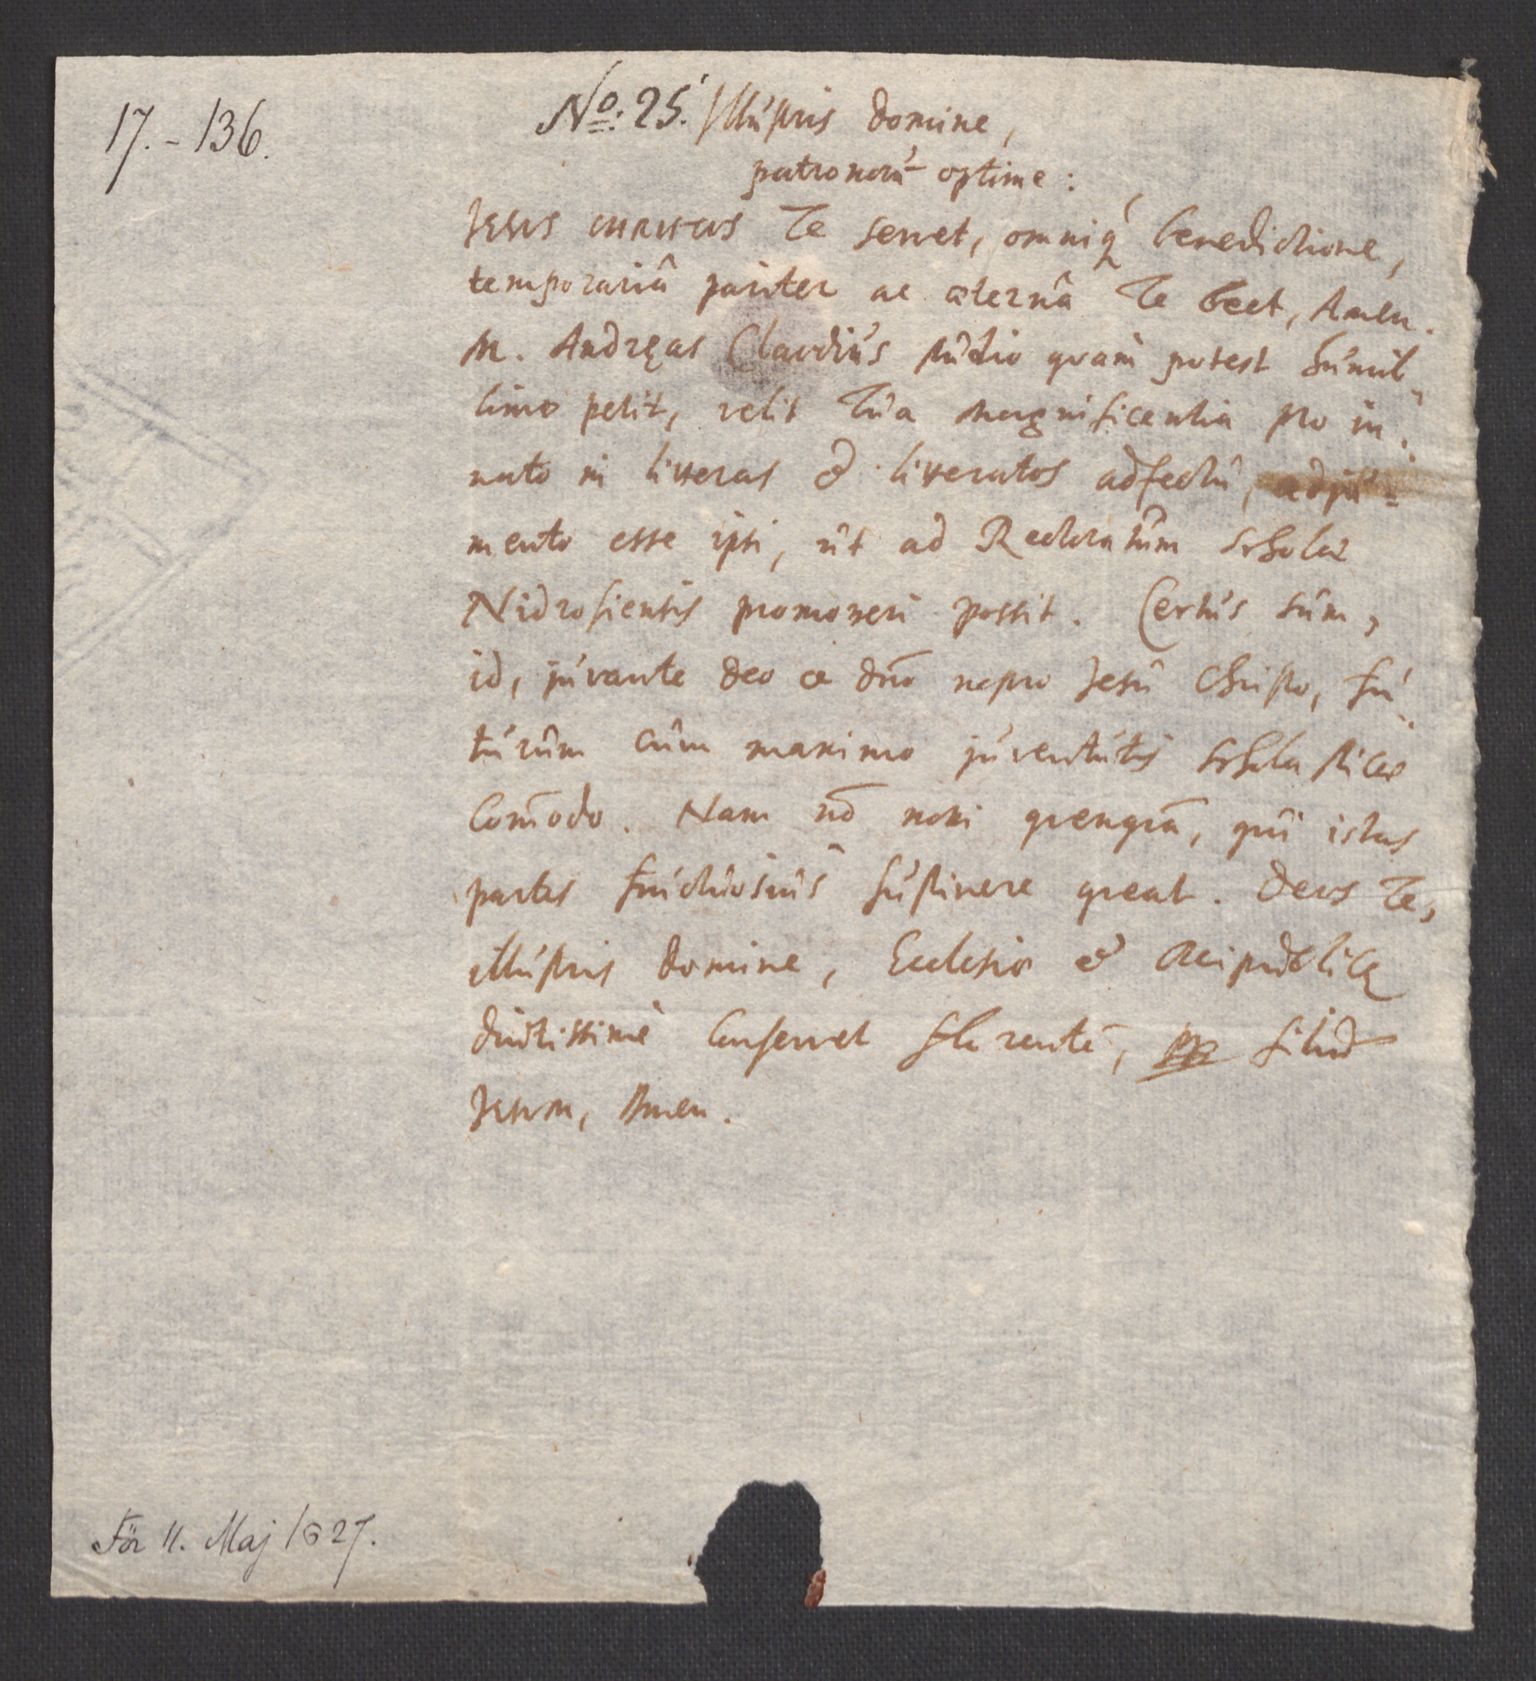 17.-136.
No: 25. Illustris Domine,
patronorū optime:
JESUS CHRISTUS Te servet, omniq́ benedictione,
temporariâ pariter ac æternâ Te beet, Amen.
M. Andręas Claudius studio quam potest humil-
limo petit, velit Tua Magnificentia pro in-
nato in litteras & litteratos adfectu, adju-
mento esse ipsi, ut ad Rectoratum Scholæ
Nidrosiensis promoveri possit. Certus sum,
id, juvante Deo ac dn̄o nostro Jesu Christo, fu-
turum cum maximo juventutis Scholasticæ
Com̄odo. Nam nō novi quenquā, qui istas
partes fructuosius sustinere queat. Deus Te,
Illustris Domine, Ecclesiæ & Reipublicę
diutissimè conservet florentē, filiū
Jesum, Amen.
För 11. Maj 1627.